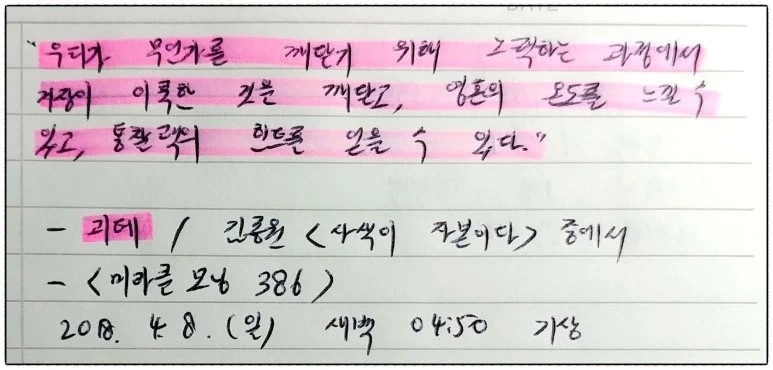 "우리가 무언가를 깨닫기 위해 노력하는 과정에서
거장이 이룩한 것을 깨닫고, 영혼의 온도를 느낄 수
있고, 통찰력의 힌트를 얻을 수 있다."
- 괴테 / 김종원 <사색이 자본이다> 중에서
- <미라클 모닝 386>
2018. 4. 8. (일) 새벽 04:50 기상